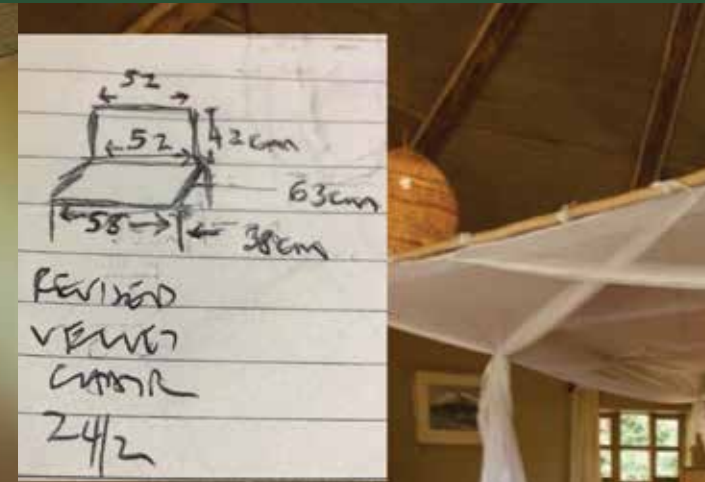 52
52
42cm
63cm
58
38cm
REVISED
VELVET
CHAIR
24/2